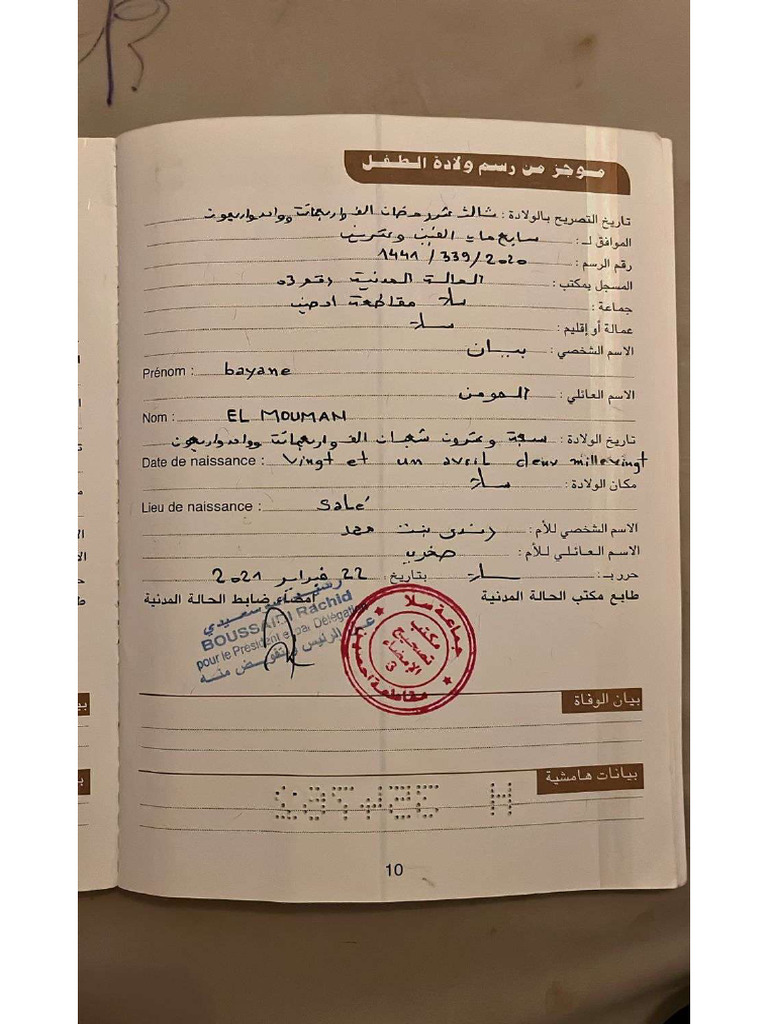 موجز من رسم ولادة الطفل
تاريخ التصريح بالولادة : ثالث عشر رمضان الف واربعمائة وواحد واربعون
الموافق لـ : سابع ماي الفين وعشرين
رقم الرسم : 1441 / 339 / 2020
المسجل بمكتب : الحالة المدنية رقم 03
جماعة : سلا مقاطعة احصين
عمالة أو إقليم : سلا
الاسم الشخصي : بيان
Prénom : bayane
الاسم العائلي : المومن
Nom : EL MOUMAN
تاريخ الولادة : سبعة وعشرون شعبان الف واربعمائة وواحد واربعون
Date de naissance : Vingt et un avril deux mille vingt
مكان الولادة : سلا
Lieu de naissance : salé
الاسم الشخصي للأم : بنت محمد
الاسم العائلي للأم :
حرر بـ : سلا بتاريخ : 22 فبراير 2021
طابع مكتب الحالة المدنية إمضاء ضابط الحالة المدنية
رشيد بوسعيدي
BOUSSAIDI Rachid
pour le Président et par Délégation
عن الرئيس وبتفويض منه
جماعة سلا
مكتب
تصحيح
الإمضاء
3
بيان الوفاة
بيانات هامشية
10